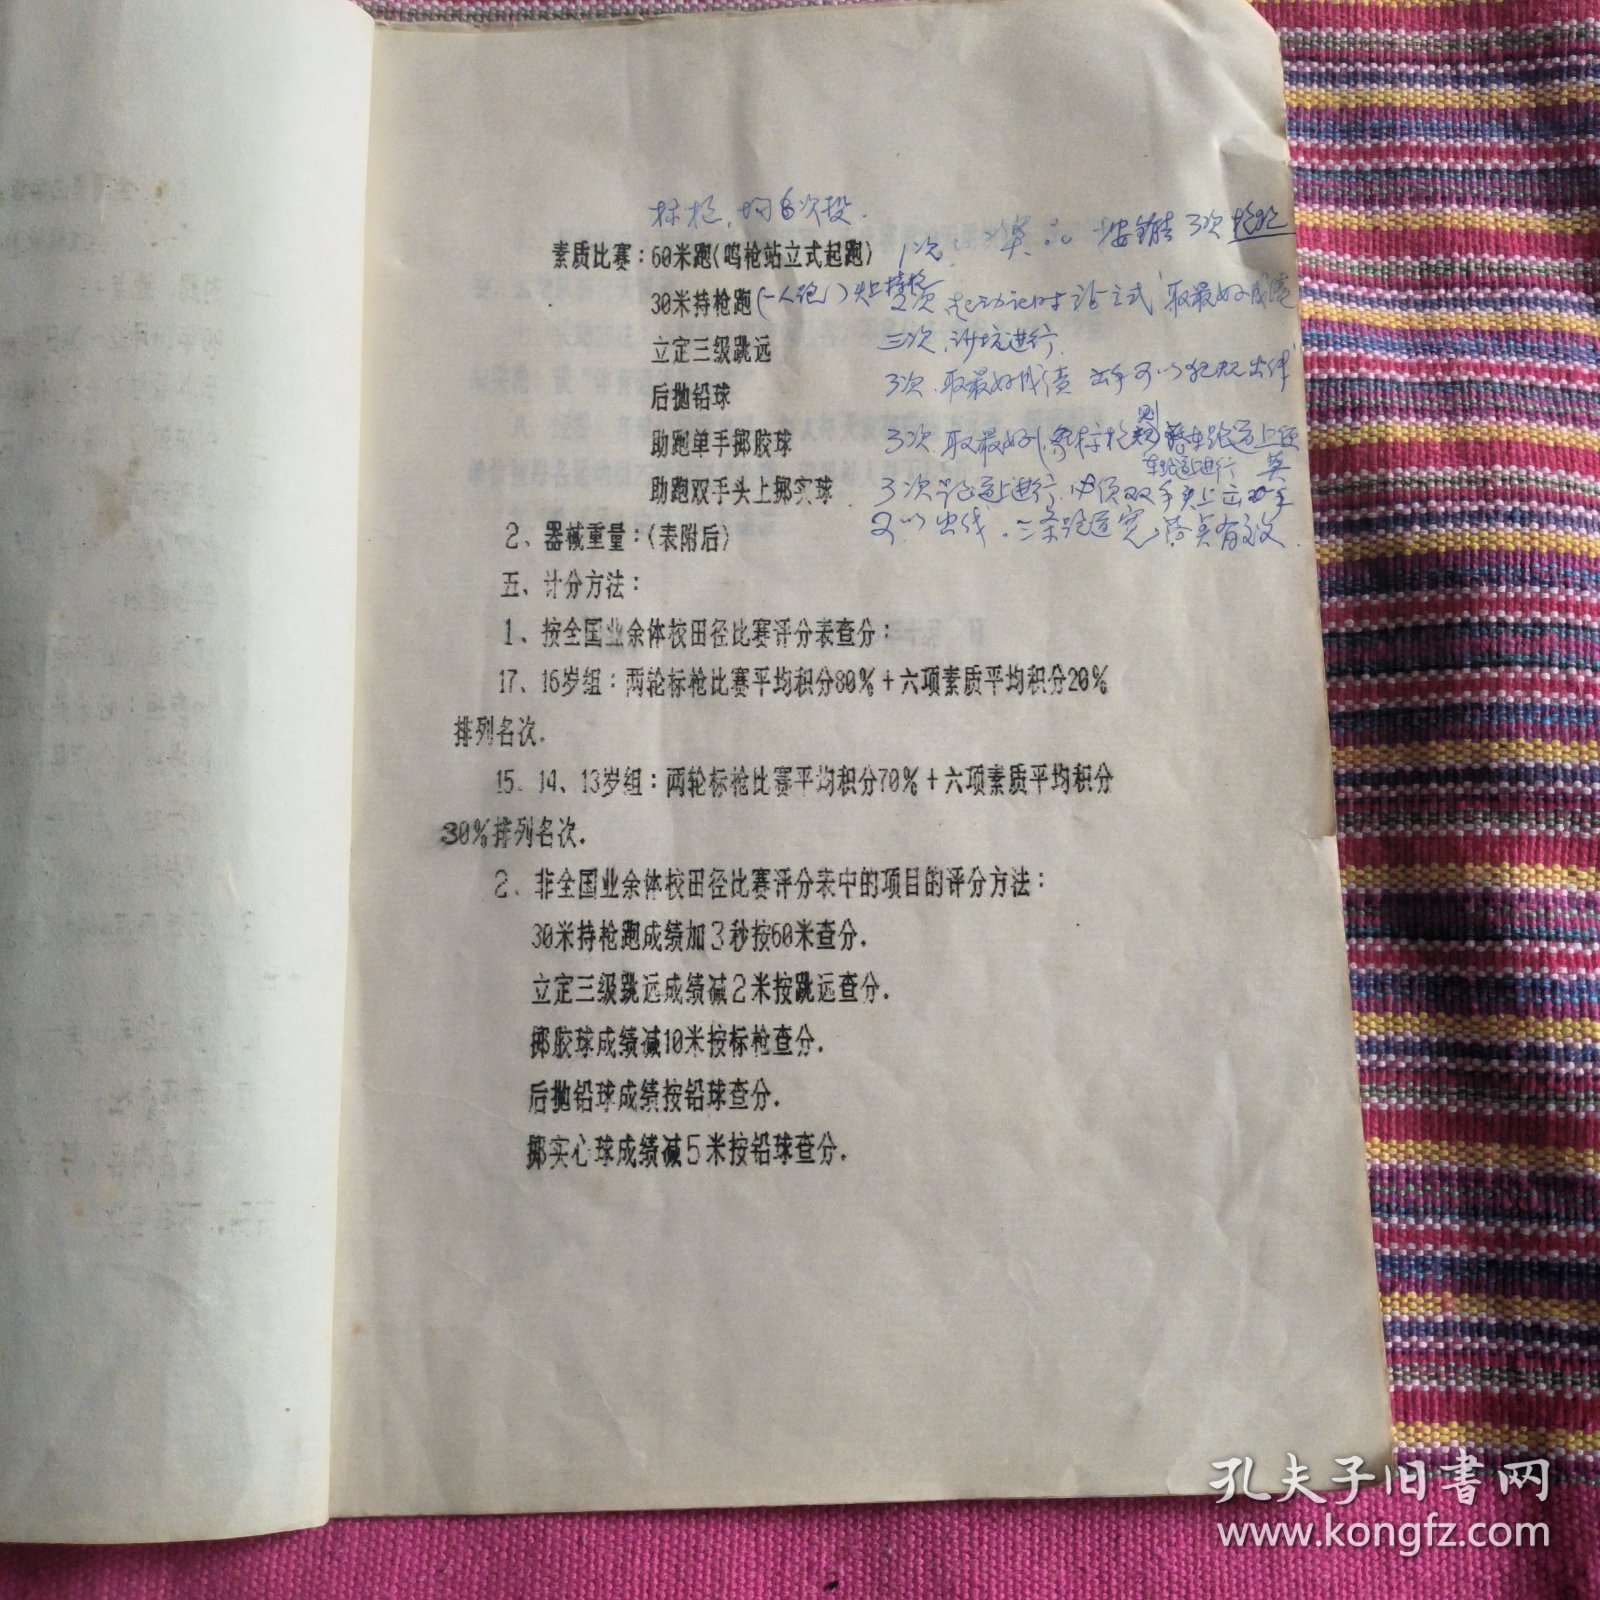 标枪,均6次投.
素质比赛：60米跑(鸣枪站立式起跑) 1次
30米持枪跑(一人跑) 2次 起动记时 站立式 取最好成绩
立定三级跳远 三次,沙坑进行.
后抛铅球 3次.取最好成绩 出手可以 出
助跑单手掷胶球 3次.取最好 标枪 跑道上
助跑双手头上掷实球 3次 跑道上进行.必须双手头上
2、器械重量：(表附后) 可以出线.三条跑道宽 有效.
五、计分方法：
1、按全国业余体校田径比赛评分表查分：
17、16岁组：两轮标枪比赛平均积分80%＋六项素质平均积分20%
排列名次.
15、14、13岁组：两轮标枪比赛平均积分70%＋六项素质平均积分
30%排列名次.
2、非全国业余体校田径比赛评分表中的项目的评分方法：
30米持枪跑成绩加3秒按60米查分.
立定三级跳远成绩减2米按跳远查分.
掷胶球成绩减10米按标枪查分.
后抛铅球成绩按铅球查分.
掷实心球成绩减5米按铅球查分.
孔夫子旧书网
www.kongfz.com